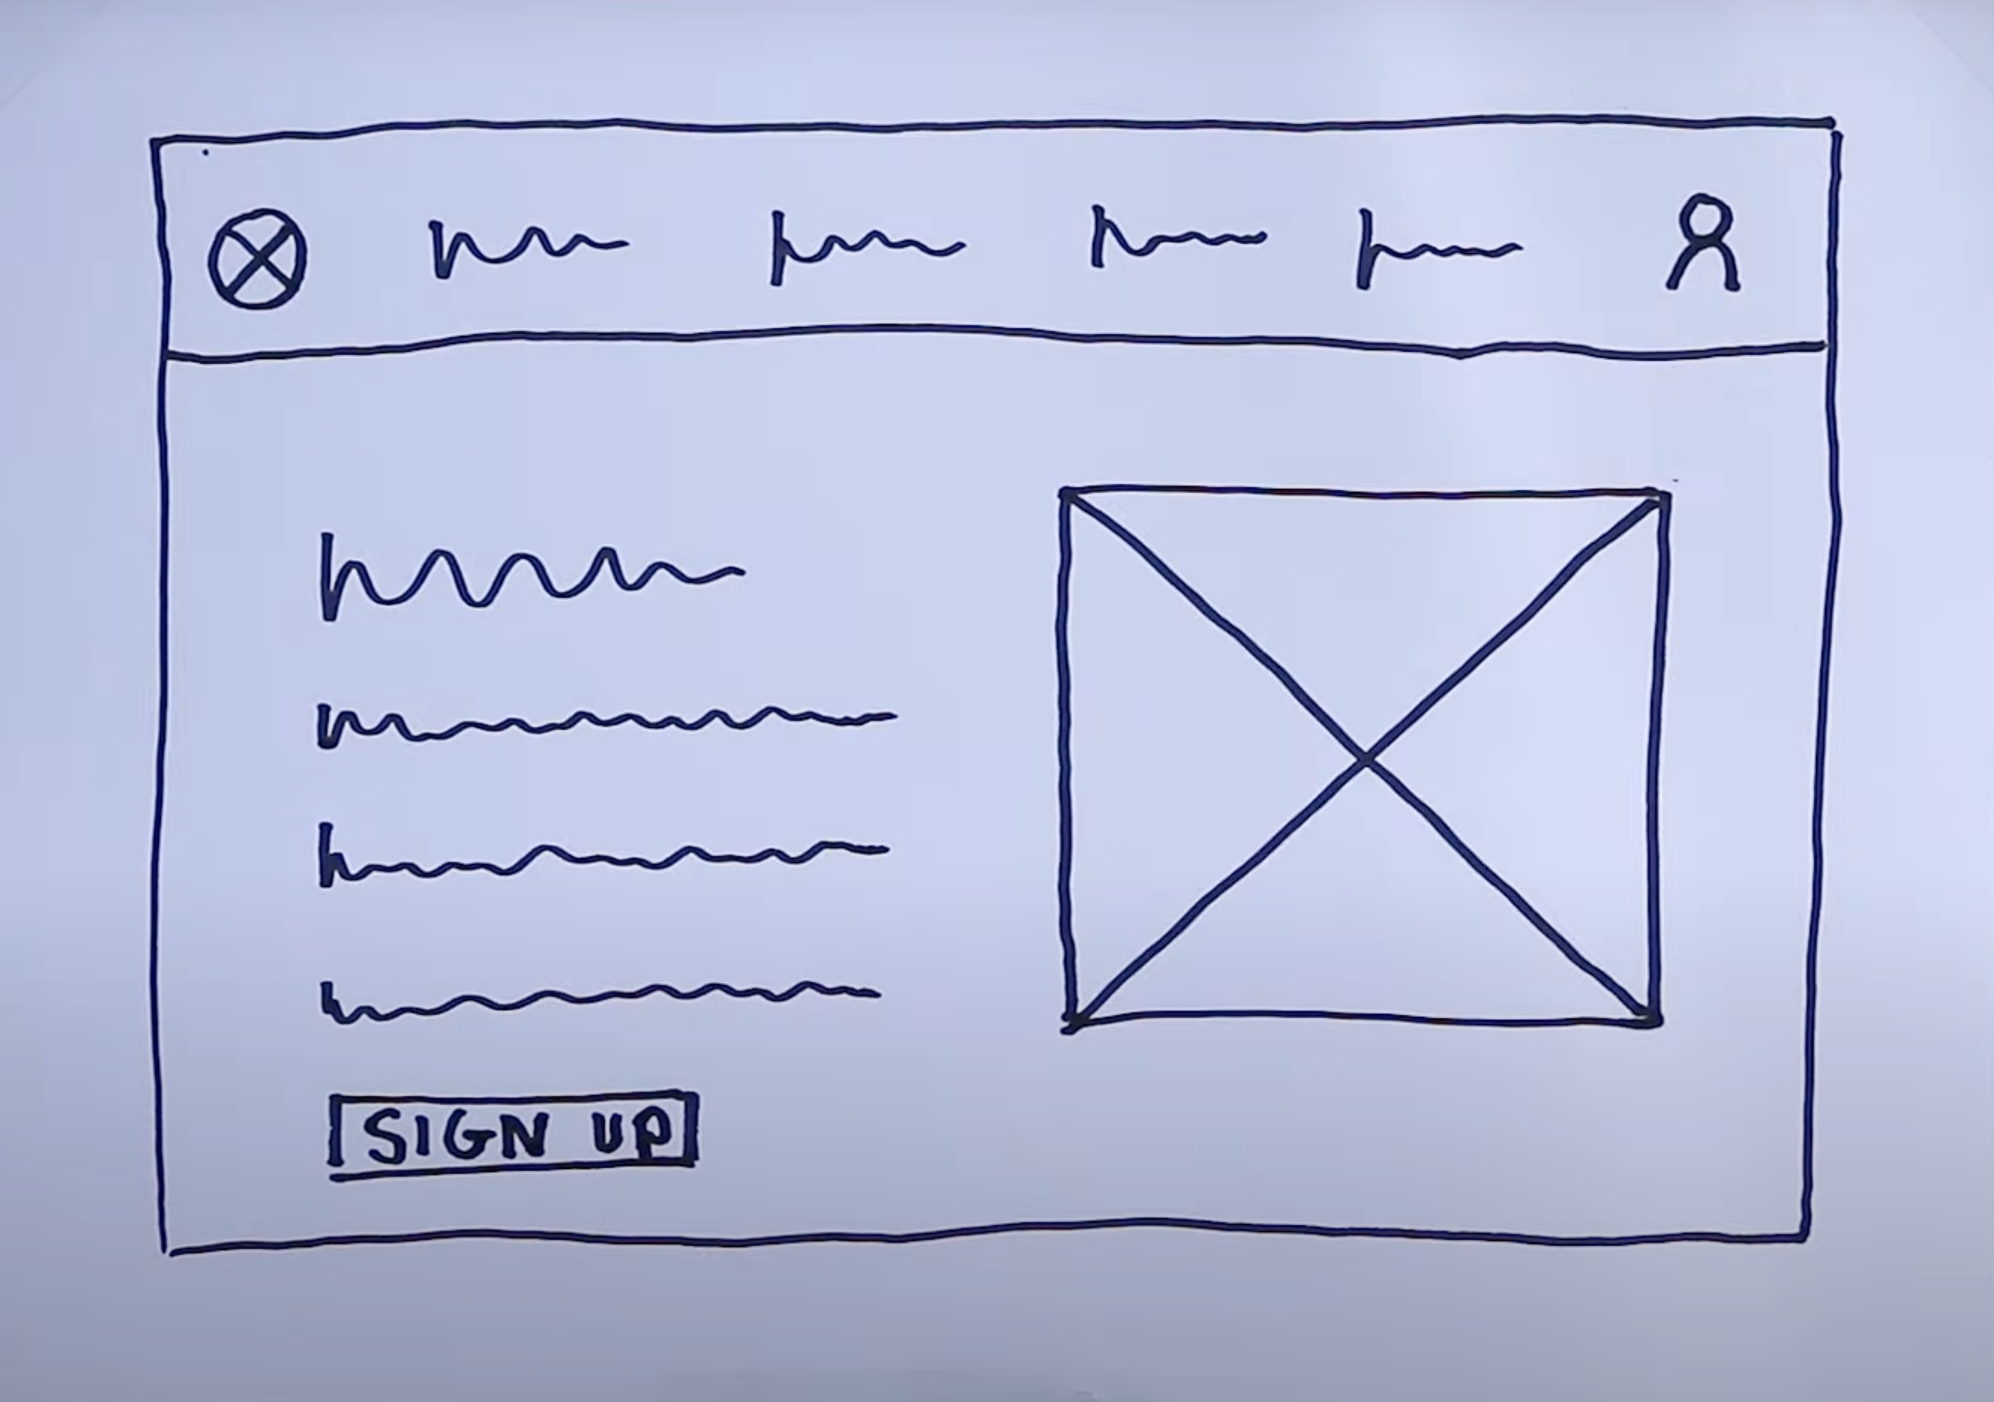 SIGN UP